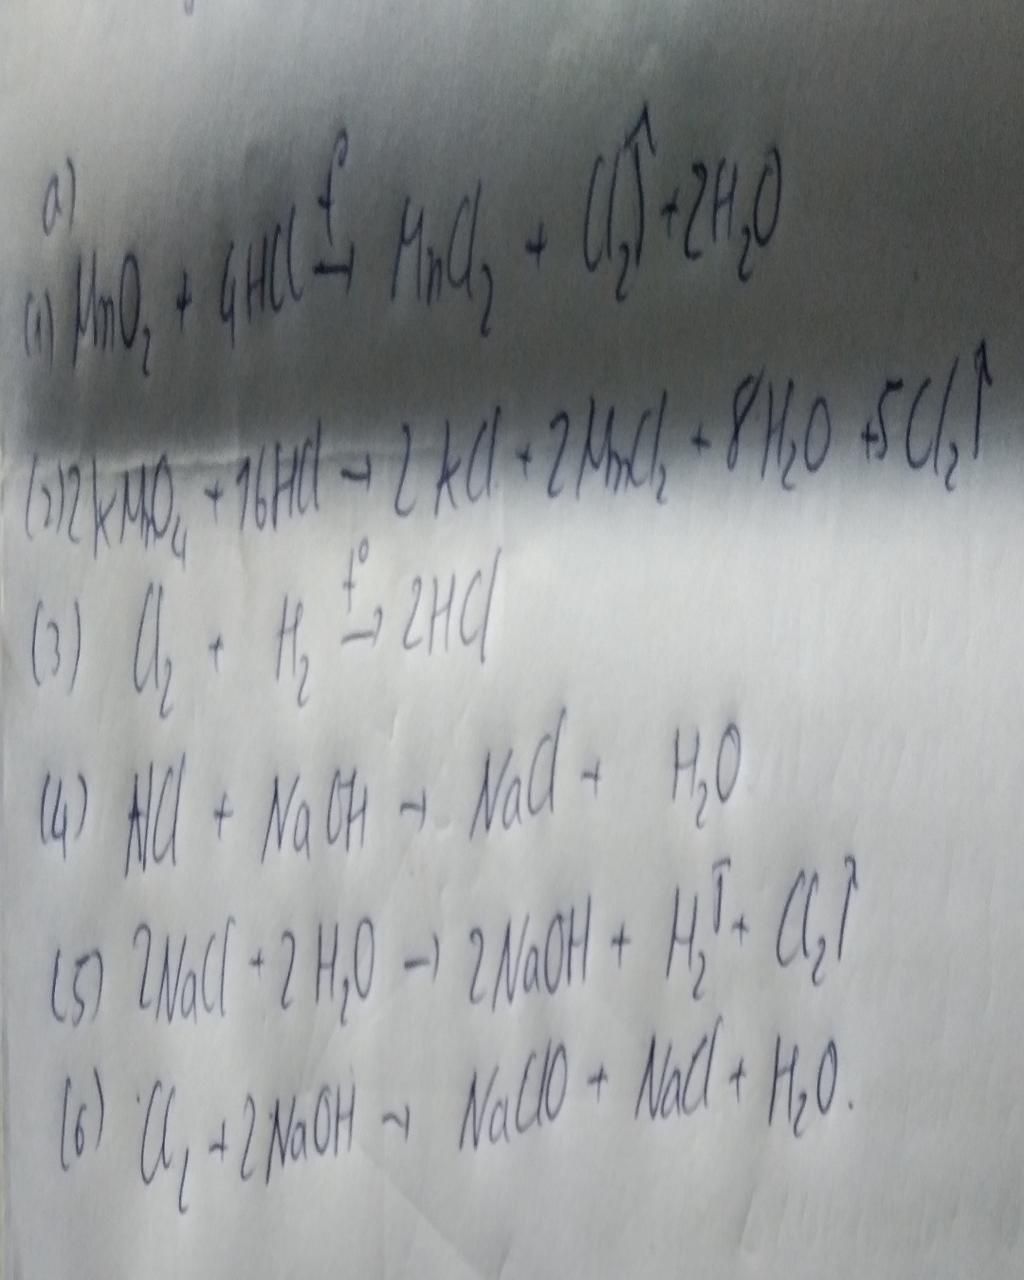 a)
(1) MnO₂ + 4HCl →t° MnCl₂ + Cl₂↑ + 2H₂O
(2) 2KMnO₄ + 16HCl → 2KCl + 2MnCl₂ + 8H₂O + 5Cl₂↑
(3) Cl₂ + H₂ →t° 2HCl
(4) HCl + NaOH → NaCl + H₂O
(5) 2NaCl + 2H₂O → 2NaOH + H₂↑ + Cl₂↑
(6) Cl₂ + 2NaOH → NaClO + NaCl + H₂O.